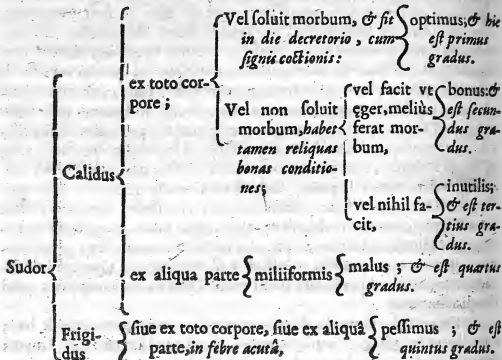 Sudor
Calidus
ex toto cor-
pore ;
Vel ſoluit morbum, & ſit
in die decretorio , cum
ſignis coctionis :
optimus;& hic
eſt primus
gradus.
Vel non ſoluit
morbum,habet
tamen reliquas
bonas conditio-
nes;
vel facit vt
ęger,meliùs
ferat mor-
bum,
bonus:&
eſt ſecun-
dus gra-
dus.
vel nihil fa-
cit,
inutilis;
& eſt ter-
tius gra-
dus.
ex aliqua parte
miliiformis
malus ; & eſt quartus
gradus.
Frigi-
dus
ſiue ex toto corpore, ſiue ex aliquâ
parte,in febre acutâ,
peſſimus ; & eſt
quintus gradus.